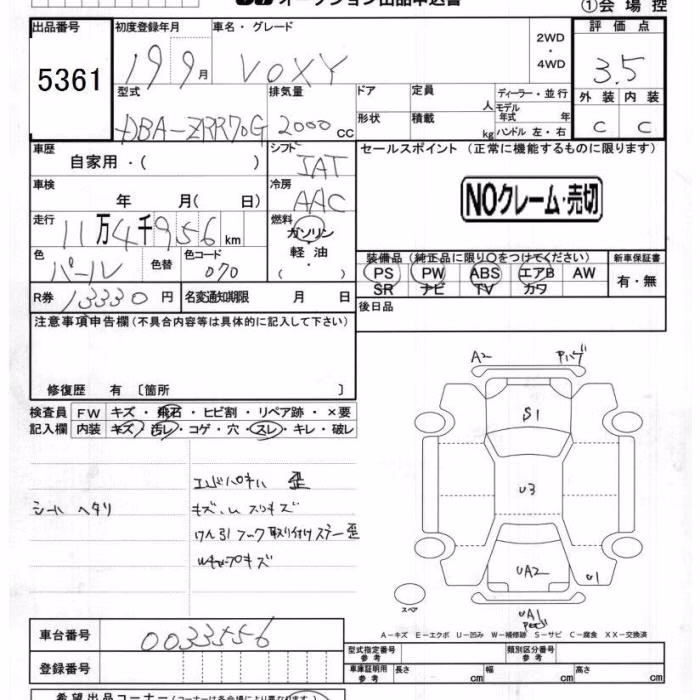 オークション出品申込書
①会場控
出品番号 初度登録年月 車名・グレード 2WD・4WD 評価点
5361 19 9月 VOXY 3.5
型式 排気量 ドア 定員 人 ディーラー・並行 外装 内装
DBA-ZRR70G 2000 CC 形状 積載 kg モデル年式 年 ハンドル 左・右 C C
車歴 自家用・( ) シフト IAT セールスポイント (正常に機能するものに限ります)
車検 年 月( 日) 冷房 AAC NOクレーム・売切
走行 11万4千956km 燃料 ガソリン・軽油 ( ・ )
色 パール 色替 色コード 070 装備品 (純正品に限り○をつけてください) 新車保証書
PS PW ABS エアB AW 有・無
SR ナビ TV カワ
R券 13330円 名変通知期限 月 日 後日品
注意事項申告欄(不具合内容等は具体的に記入して下さい)
修復歴 有 〔箇所 〕
検査員記入欄 FW キズ・飛石・ヒビ割・リペア跡・×要
内装 キズ・汚レ・コゲ・穴・スレ・キレ・破レ
A2
S1
U3
UA2 U1
UA1
シートヘタリ
歪
キズ
けん引フック取り付けステー歪
スペア
A-キズ E-エクボ U-凹み W-補修跡 S-サビ C-腐食 XX-交換済
車台番号 0033556
型式指定番号 参考 類別区分番号 参考
登録番号 車庫証明用 参考 長さ cm 幅 cm 高さ cm
希望出品コーナー